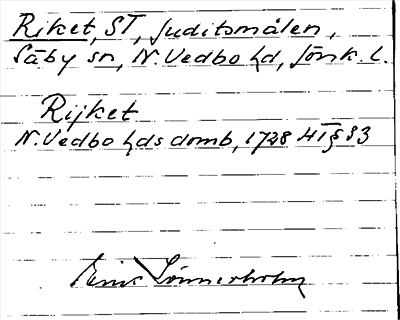 Riket, ST, Juditsmålen,
Säby sn, N. Vedbo hd, Jönk. l.
Rijket
N. Vedbo hds domb, 1728 HT § 33
Erik Lönnerholm